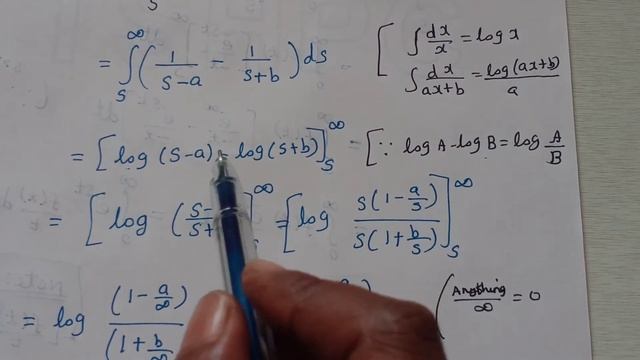 = ∫_S^∞ ( 1/(S-a) - 1/(S+b) ) ds [ ∫ dx/x = log x
∫ dx/(ax+b) = log(ax+b)/a
= [ log (S-a) - log(S+b) ]_S^∞ [ ∵ log A - log B = log A/B
= [ log (S- / S+ ]^∞ = [ log S(1 - a/S) / S(1 + b/S) ]_S^∞
= log (1 - a/∞) / (1 + b/∞ ( Anything/∞ = 0